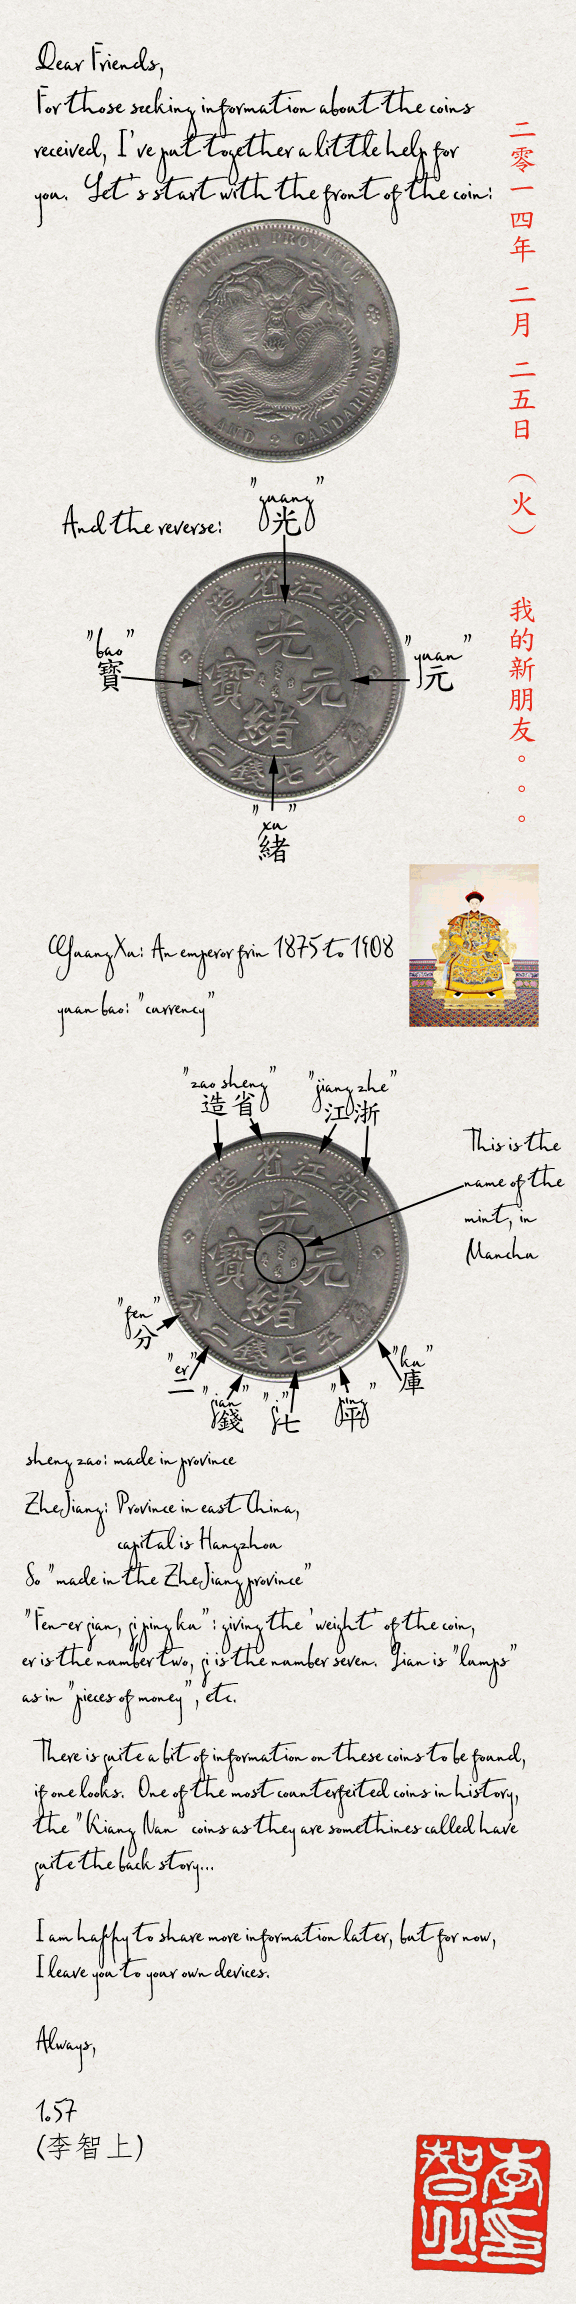 Dear Friends,
For those seeking information about the coins
received, I've put together a little help for
you. Let's start with the front of the coin:
二零一四年 二月 二五日 (火) 我的新朋友。。。
HU-PEH PROVINCE
7 MACE AND 2 CANDAREENS
"guang"
光
And the reverse:
造省江浙
光
"bao"
寶
寶 元
"yuan"
元
緒
分二錢七平庫
"xu"
緒
GuangXu: An emperor frin 1875 to 1908
yuan bao: "currency"
"zao sheng"
造省
"jiang zhe"
江浙
造省江浙
This is the
name of the
mint, in
Manchu
光
寶 元
緒
分二錢七平庫
"fen"
分
"er"
二
"jian"
錢
"qi"
七
"ping"
平
"ku"
庫
sheng zao: made in province
ZheJiang: Province in east China,
capital is Hangzhou
So "made in the ZheJiang province"
"Fen-er jian, qi ping ku": giving the 'weight' of the coin,
er is the number two, qi is the number seven. Jian is "lumps"
as in "pieces of money", etc.
There is quite a bit of information on these coins to be found,
if one looks. One of the most counterfeited coins in history,
the "Kiang Nan" coins as they are somethines called have
quite the back story...
I am happy to share more information later, but for now,
I leave you to your own devices.
Always,
1.57
(李智上)
李印
智上